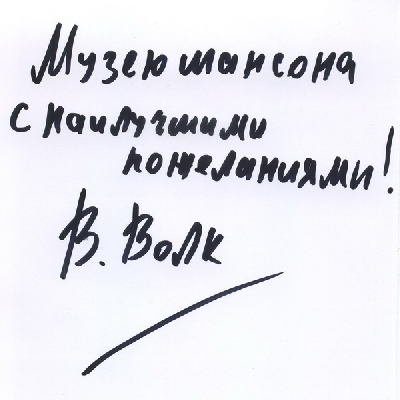 Музею шансона
с наилучшими
пожеланиями!
В. Волк